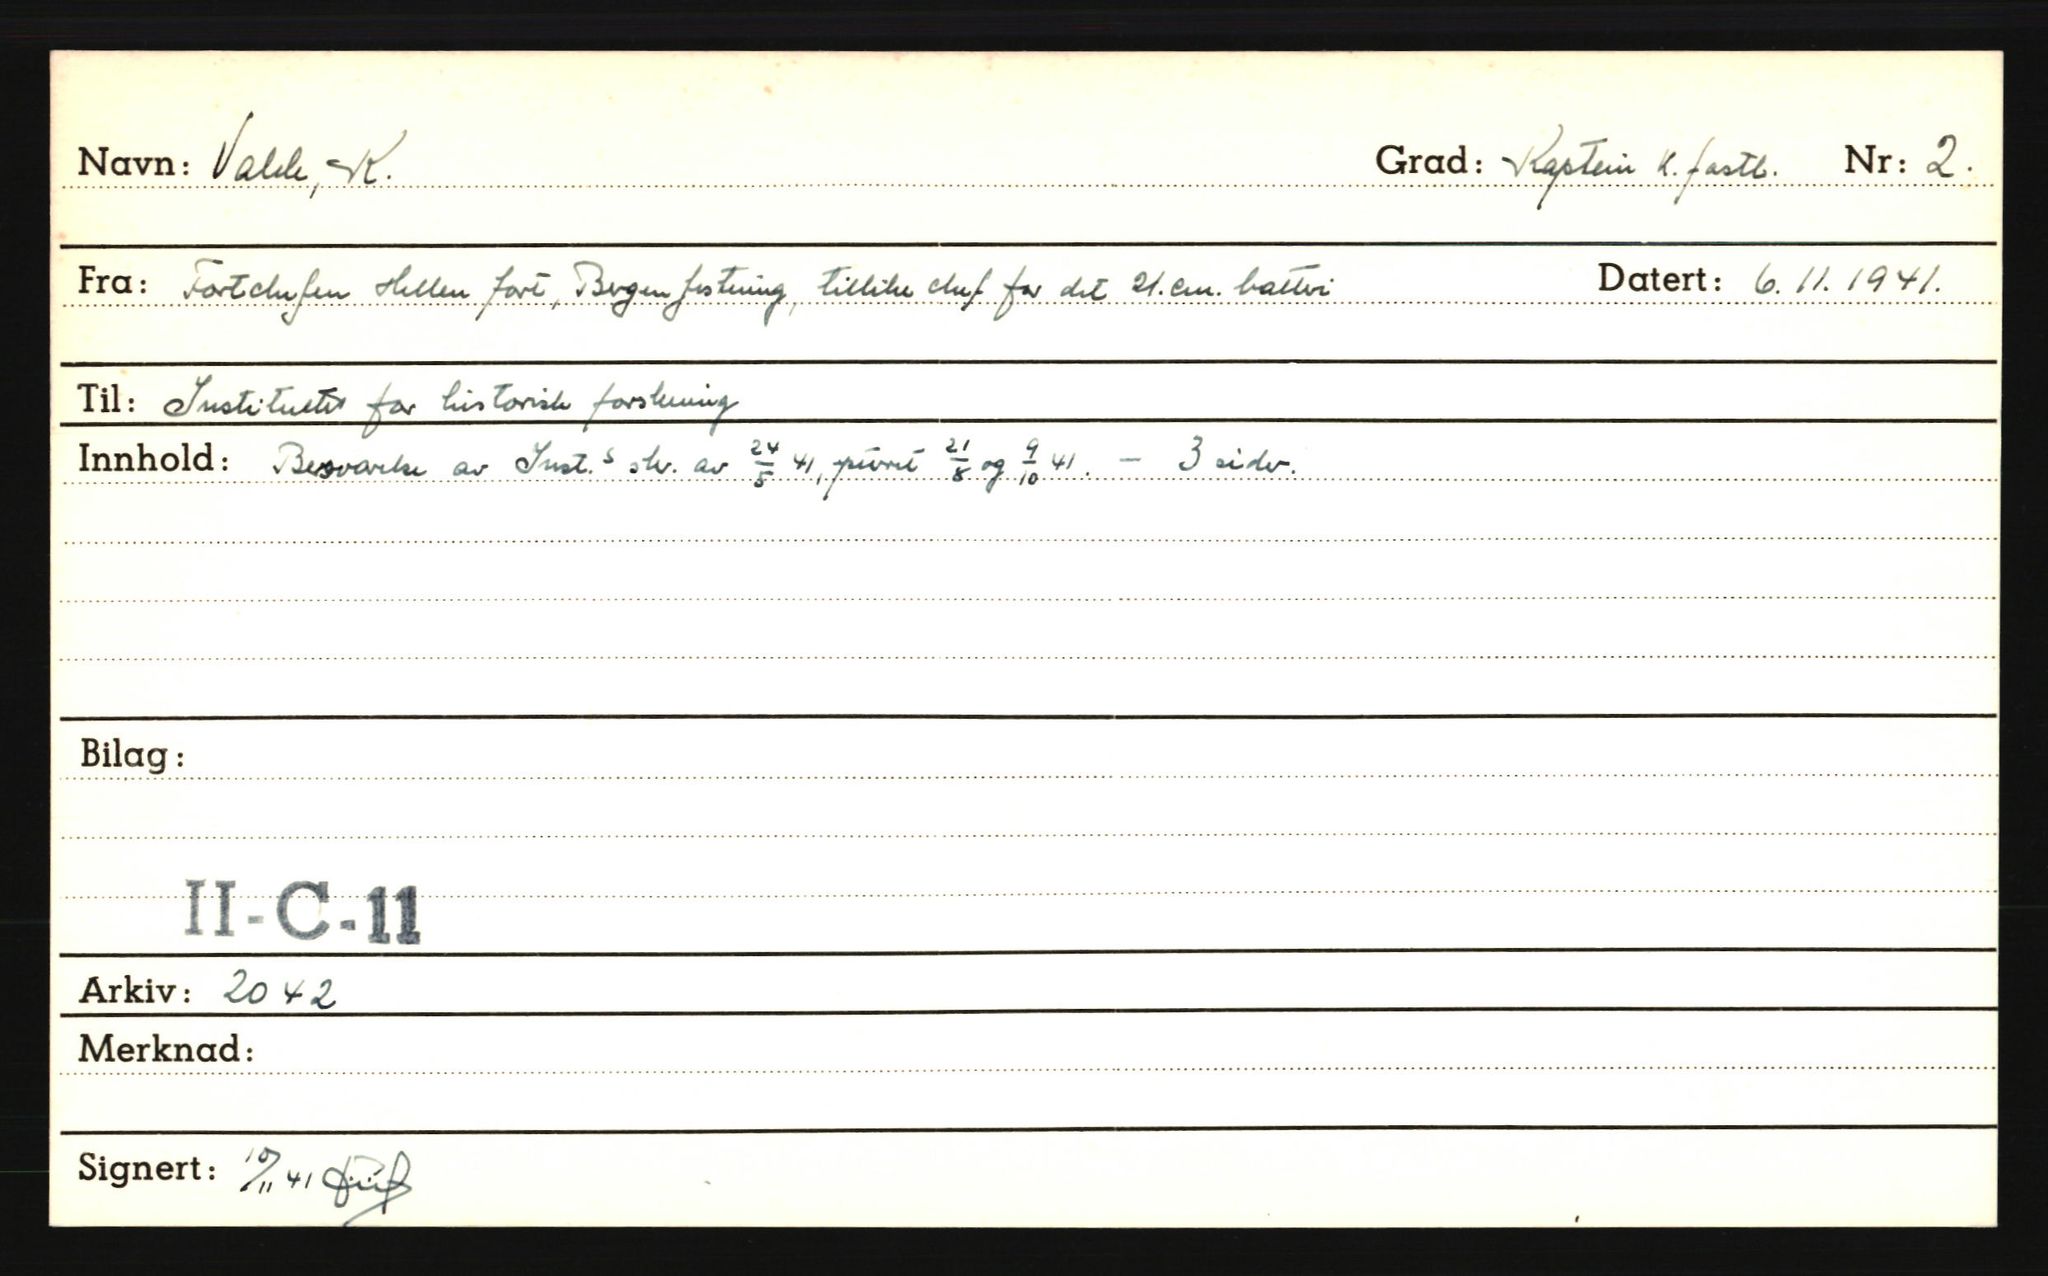 Navn: Valde, K. Grad: Kaptein K. fastb. Nr: 2.
Fra: Fortchefen Hellen fort, Bergen festning, tillike chef for det 21. cm. batteri Datert: 6. 11. 1941.
Til: Instituttet for historisk forskning
Innhold: Besvarelse av Inst.s skr. av 24/5 41, purret 21/8 og 9/10 41. — 3 sider.
Bilag:
II-C-11
Arkiv: 2042
Merknad:
Signert: 10/11 41